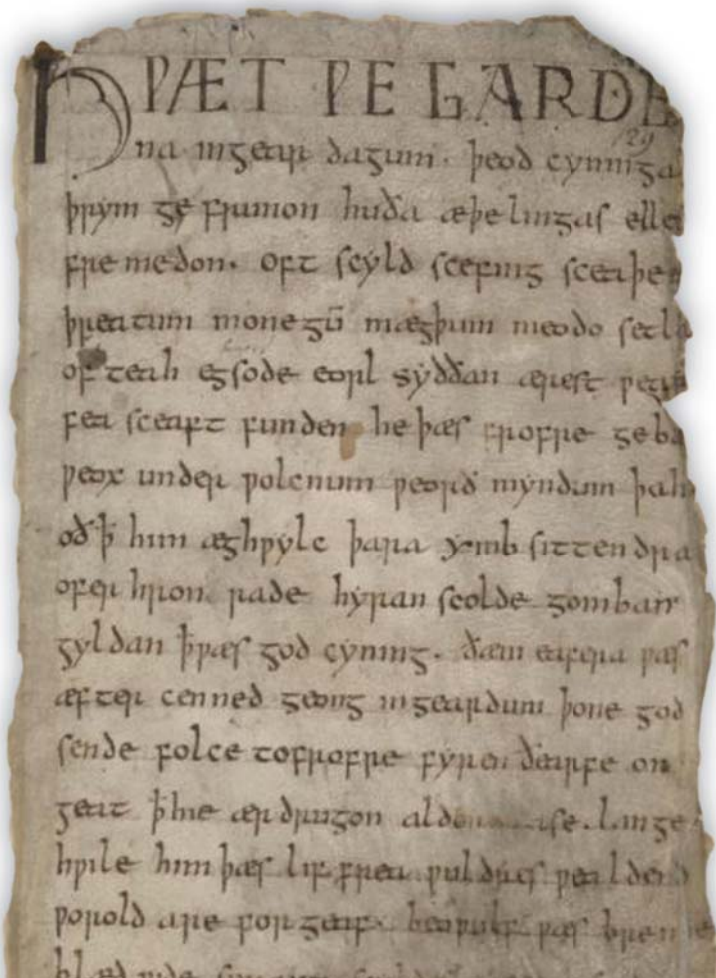 HǷÆT ǷE GARDE
na ingear dagum. þeod cyninga
þrym ge frunon huða æþelingas elle
fremedon. oft scyld scefing sceaþe
þreatum monegū mægþum meodo setla
of teah egsode eorl syððan ærest ƿear
fea sceaft funden he þæs frofre geba
ƿeox under ƿolcnum ƿeorð myndum þah
oð ꝥ him æghƿylc þara ymb sittendra
ofer hron rade hyran scolde gomban
gyldan ꝥ ƿæs god cyning. ðæm eafera ƿæs
æfter cenned geong ingeardum þone god
sende folce tofrofre fyren ðearfe on
geat ꝥ hie ær drugon aldor ase. lange
hƿile him þæs lif frea ƿuldres ƿealdend
ƿorold are for geaf. beoƿulf ƿæs breme
blæd ƿide
29